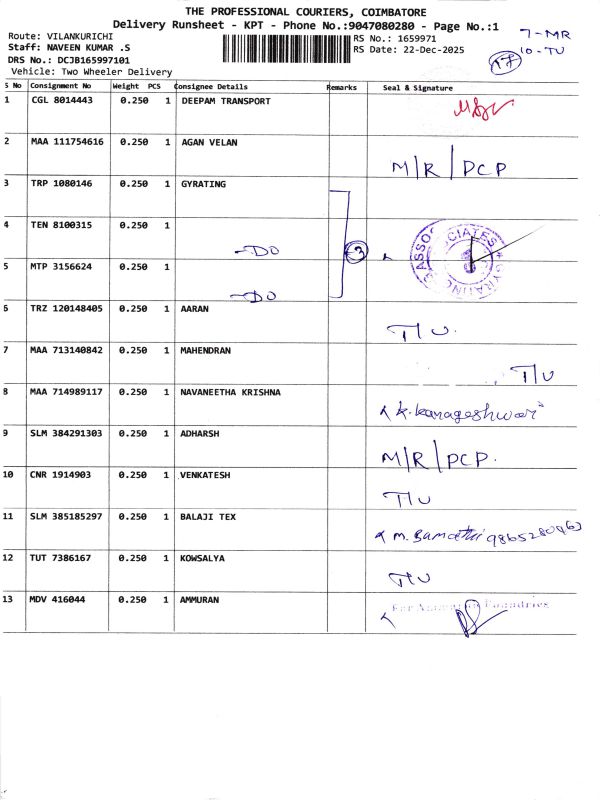 THE PROFESSIONAL COURIERS, COIMBATORE
Delivery Runsheet - KPT - Phone No.:9047080280 - Page No.:1
Route: VILANKURICHI RS No.: 1659971 7-MR
Staff: NAVEEN KUMAR .S RS Date: 22-Dec-2025 10-TU
DRS No.: DCJB165997101 17
Vehicle: Two Wheeler Delivery
S No Consignment No Weight PCS Consignee Details Remarks Seal & Signature
1 CGL 8014443 0.250 1 DEEPAM TRANSPORT
2 MAA 111754616 0.250 1 AGAN VELAN M/R/PCP
3 TRP 1080146 0.250 1 GYRATING
4 TEN 8100315 0.250 1 -DO 3 ASSOCIATES * GYRATING
5 MTP 3156624 0.250 1 -DO
6 TRZ 120148405 0.250 1 AARAN T/U.
7 MAA 713140842 0.250 1 MAHENDRAN T/U
8 MAA 714989117 0.250 1 NAVANEETHA KRISHNA K.Kanageshwari
9 SLM 384291303 0.250 1 ADHARSH M/R/PCP.
10 CNR 1914903 0.250 1 VENKATESH T/U
11 SLM 385185297 0.250 1 BALAJI TEX
12 TUT 7386167 0.250 1 KOWSALYA T/U
13 MDV 416044 0.250 1 AMMURAN For Foundries